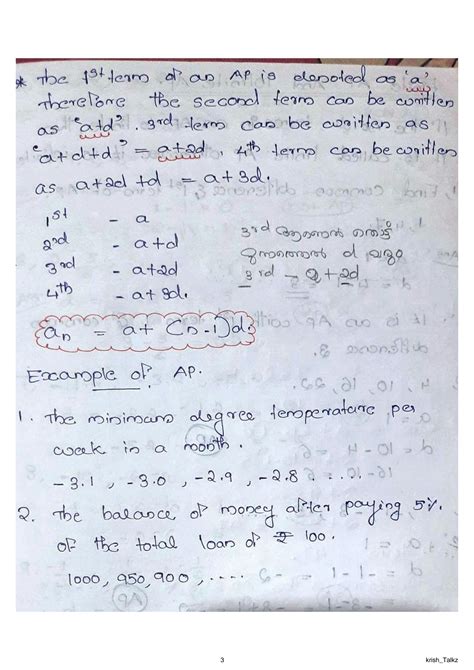 * The 1st term of an AP is denoted as 'a'
Therefore the second term can be written
as 'a+d'. 3rd term can be written as
'a+d+d' = a+2d 4th term can be written
as a+2d+d = a+3d.
1st - a
2nd - a+d
3rd - a+2d
4th - a+3d.
3rd ആണെങ്കിൽ തൊട്ട്
മുന്നത്തെ d വരും
3rd - a+2d
an = a+(n-1)d.
Example of AP.
1. The minimum degree temperature per
week in a month.
-3.1, -3.0, -2.9, -2.8 ....
2. The balance of money after paying 5%
of the total loan of ₹ 100.
1000, 950, 900, .....
3
krish_Talkz